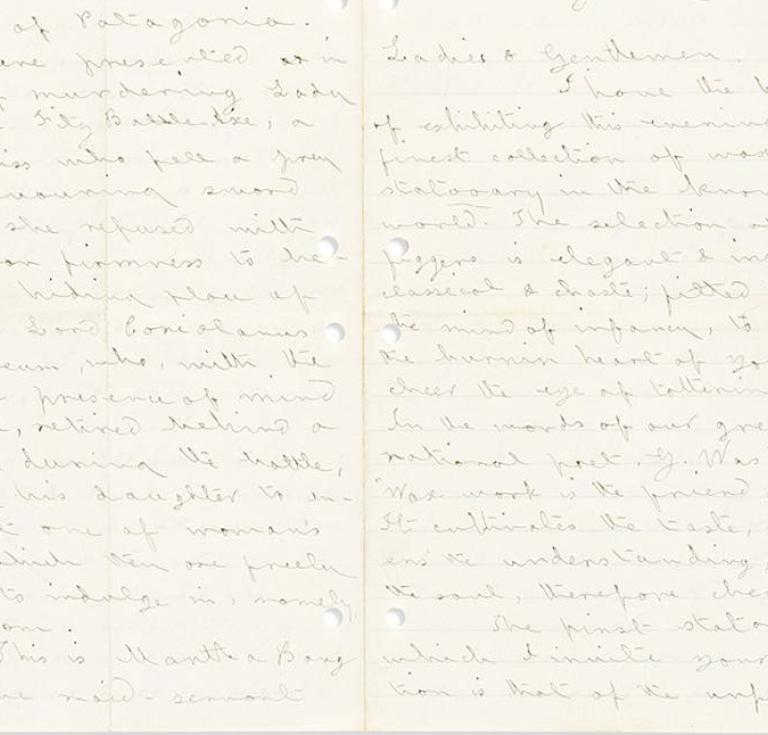 of Patagonia.
presented as in
murdering Lady
Fitz Battle Axe, a
who fell a prey
sword
she refused with
firmness to be-
hiding place of
Lord Coriolanus
who, with the
presence of mind
retired behind a
during the battle,
his daughter to in-
one of woman's
which then are freely
to indulge in, namely,
This is Martha Bang
maid-servant
Ladies & Gentlemen.
I have the
of exhibiting this evening
finest collection of wax
statooary in the know
world. The selection
figgers is elegant &
classical & chaste; fitted
the mind of infancy, to
the burnin heart of yo
cheer the eye of totterin
In the words of our gre
national poet, G. Was
"Wax work is the friend
It cultivates the taste,
ens the understanding,
the soul, therefore che
The first stato
which I invite your
tion is that of the unf